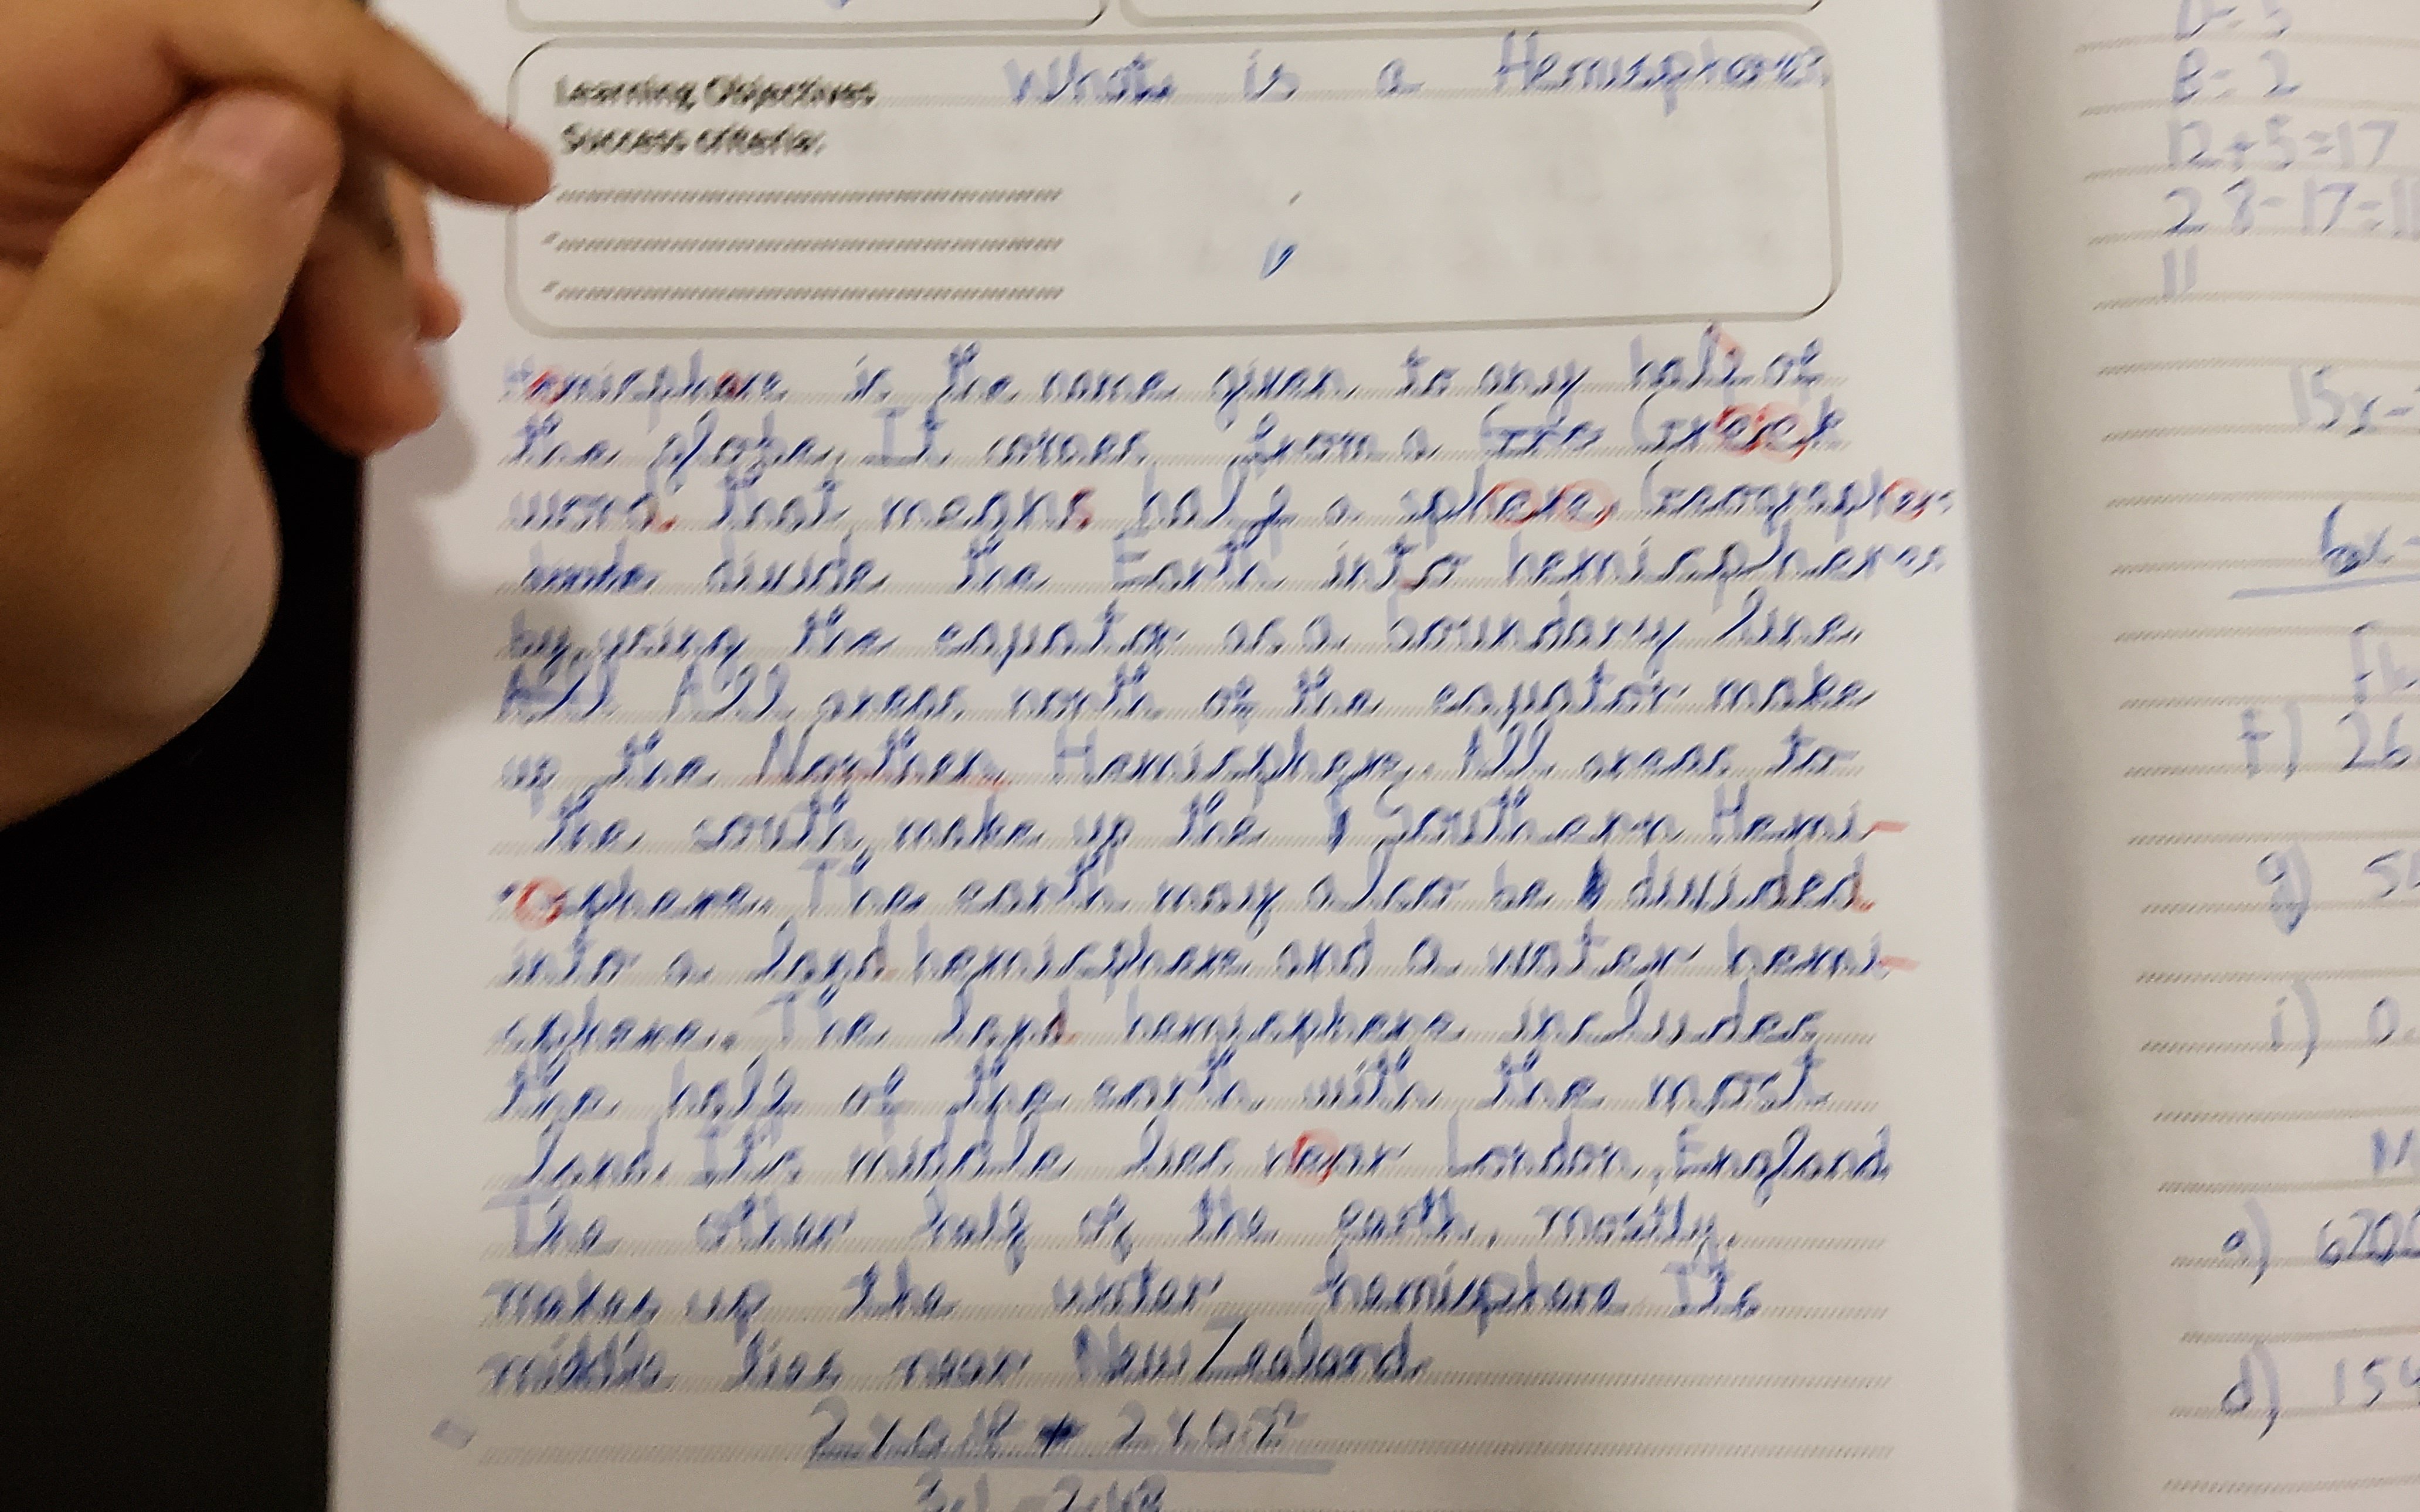 Learning Objectives What is a Hemisphere
Success criteria:
Hemisphere is the name given to any half of
the globe. It comes from a Gre Greek
word that means half a sphere. Geographer
divide the Earth into hemispheres
by using the equator as a boundary line
All All areas north of the equator make
up the Northen Hemisphere. All areas to
the south make up the Southern Hemi-
sphere. The earth may also be divided
into a land hemisphere and a water hemi-
sphere. The land hemisphere includes
the half of the earth with the most
land. It's middle lies near London, England
The other half of the earth, mostly,
makes up the water hemisphere Its
middle lies near New Zealand.
D=5
B=2
12+5=17
28-17=11
11
15x-
6x-
f) 26
g) 5
i) 0.
a) 620
d) 154